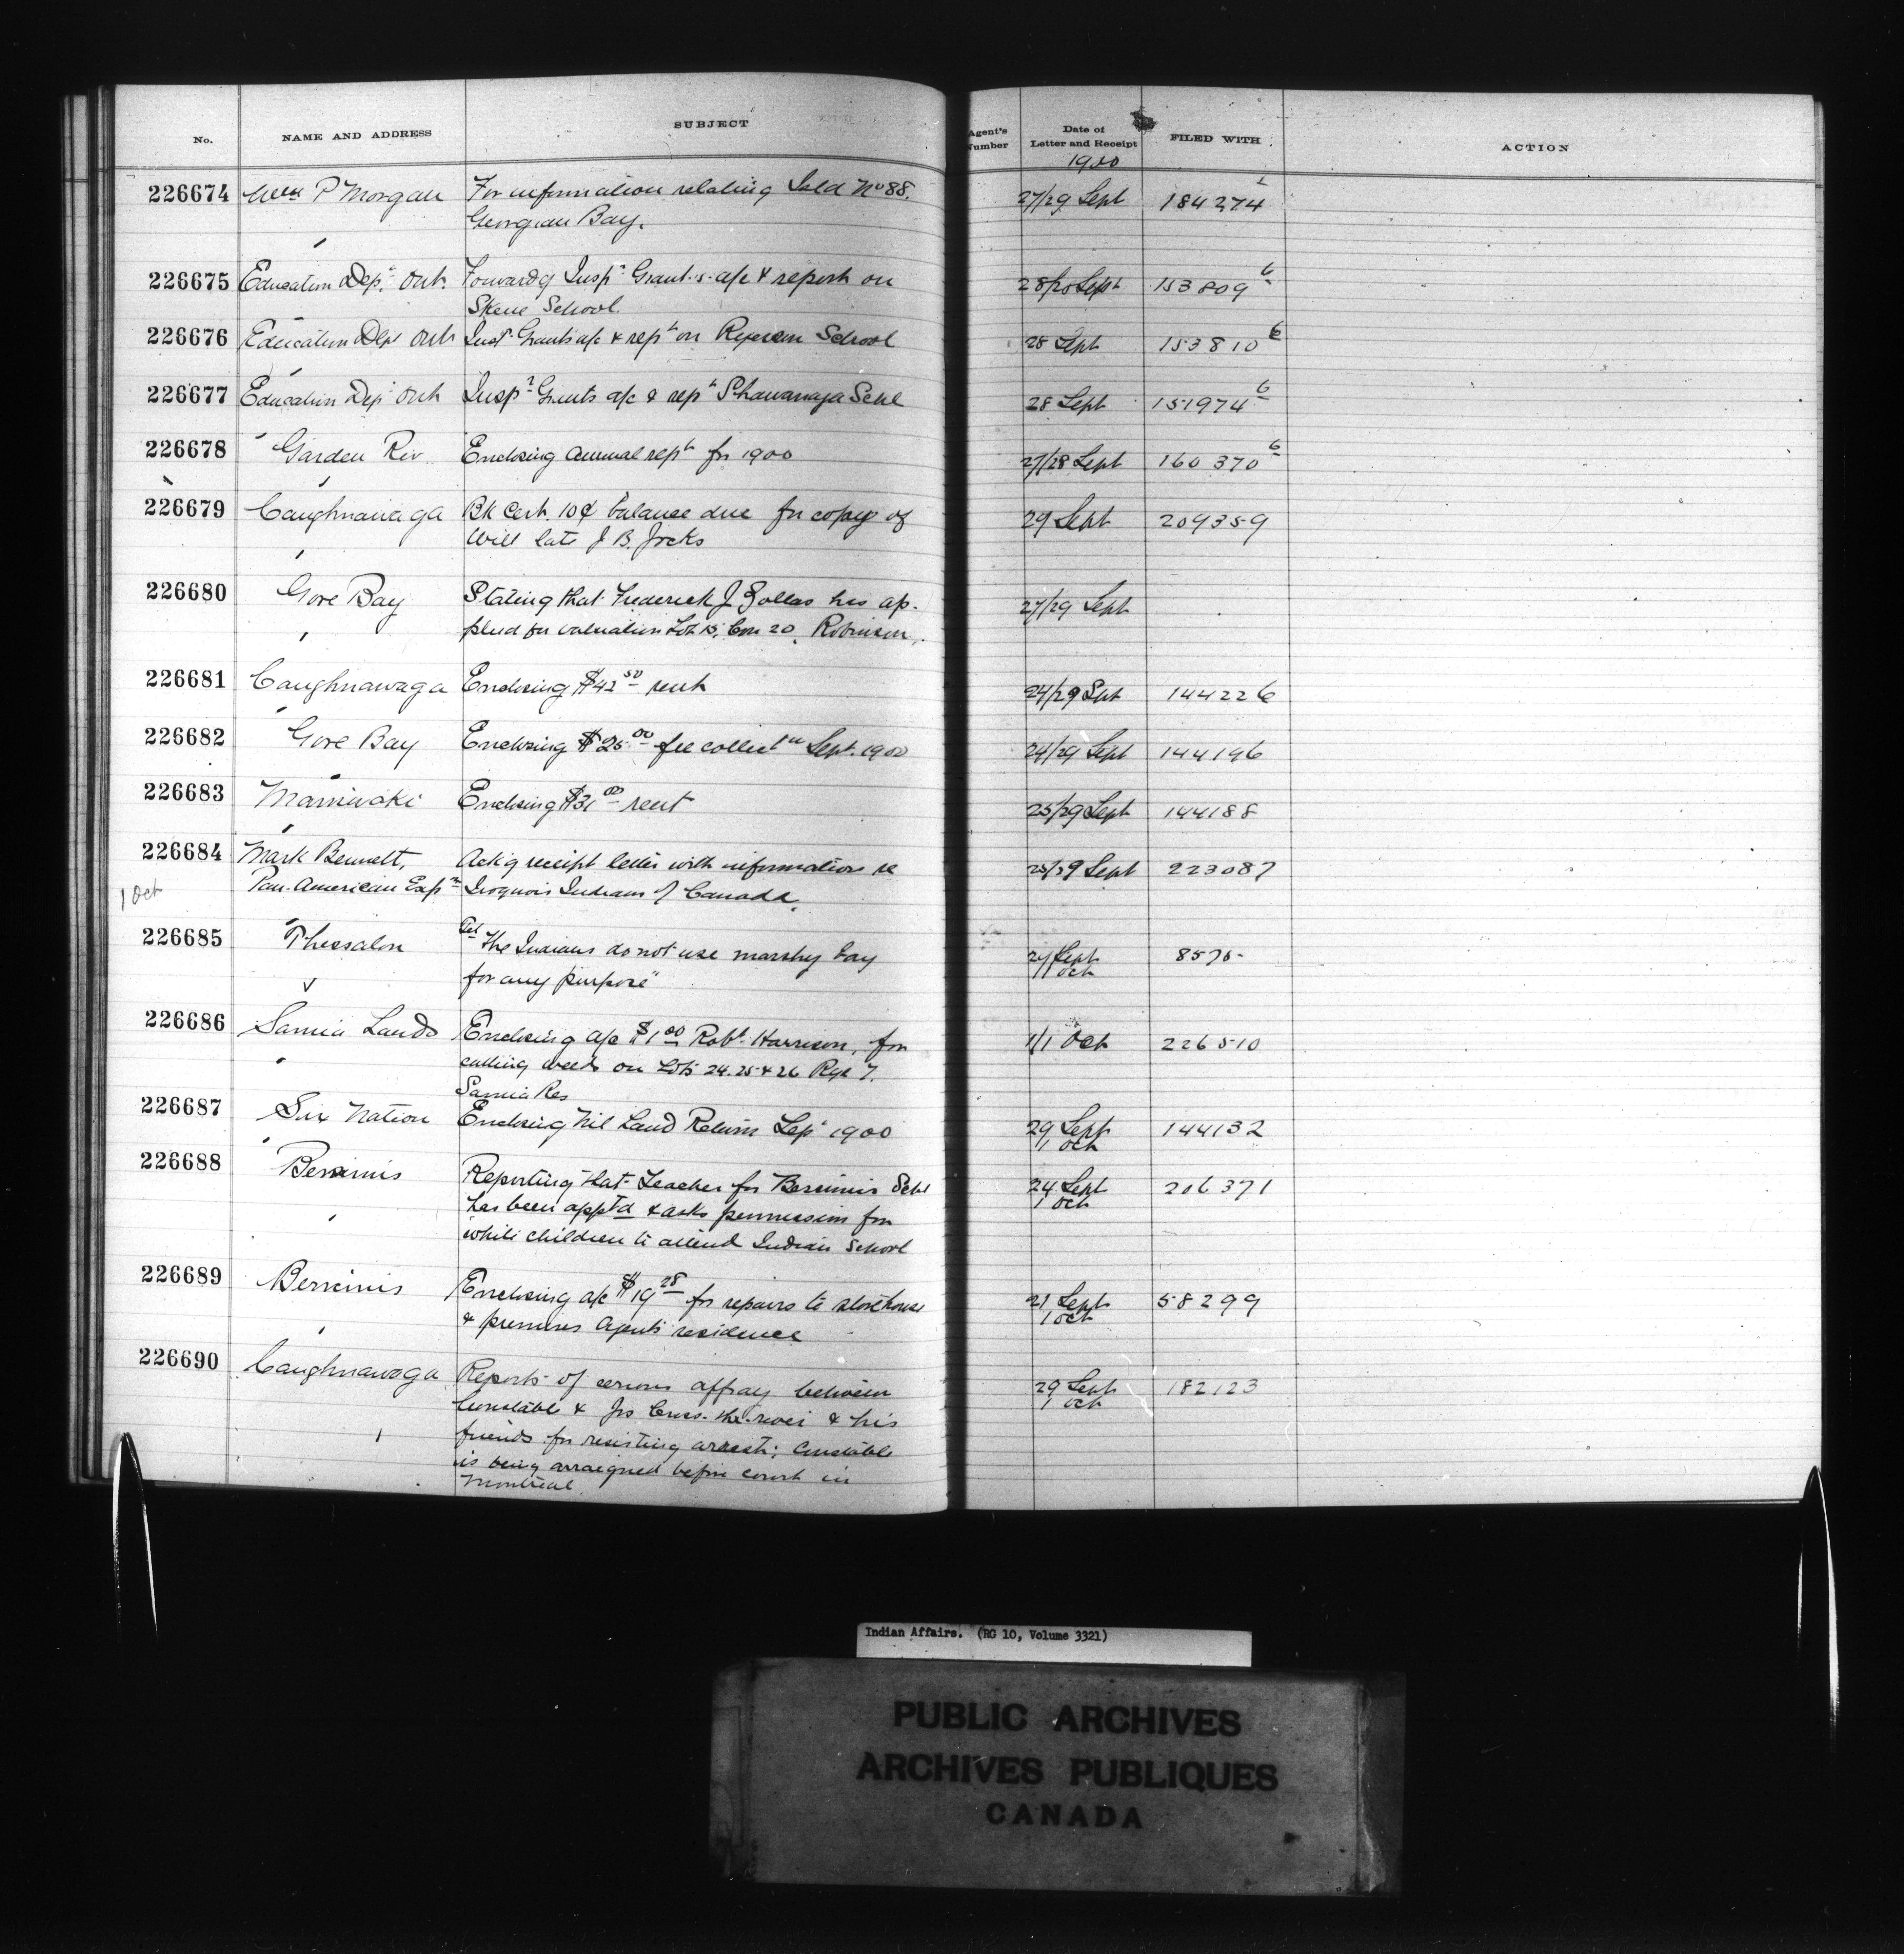 No. NAME AND ADDRESS SUBJECT Agent's Number Date of Letter and Receipt FILED WITH ACTION
1900
226674 Wm P Morgan For information relating Isld No 88. 27/29 Sept 184274
Georgian Bay.
226675 Education Dept. Ont. Forwardg Inspr Grants a/c & report on 28/20 Sept 153809 6
Skene School.
226676 Education Dept Ont Inspr Grants a/c & rept on Ryerson School 28 Sept 153810 6
226677 Education Dept Ont Inspr Grants a/c & rept Shawanaga Schl 28 Sept 151974 6
226678 Garden Riv. Enclosing annual rept for 1900 27/28 Sept 160370 6
226679 Caughnawaga Bk Cert. 10¢ balance due for copy of 29 Sept 209359
Will late J. B. Jocks
226680 Gore Bay Stating that Frederick J. has ap- 27/29 Sept
plied for valuation Lot 15, Con 20, Robinson.
226681 Caughnawaga Enclosing $42 50 rent 24/29 Sept 144226
226682 Gore Bay Enclosing $25 00 fee collectn Sept. 1900 24/29 Sept 144196
226683 Maniwaki Enclosing $31 00 rent 25/29 Sept 144188
226684 Mark Bennett, Ackg receipt letter with information re 25/29 Sept 223087
1 Oct Pan-American Expn Iroquois Indians of Canada.
226685 Thessalon Tel "The Indians do not use marshy bay 29 Sept 8570
for any purpose" 1 Oct
226686 Sarnia Lands Enclosing a/c $1 00 Robt Harrison, for 1/1 Oct 226510
cutting weeds on Lots 24. 25 & 26 Rge 7.
Sarnia Res
226687 Six Nation Enclosing Nil Land Return Sept 1900 29 Sept 144132
1 Oct
226688 Bersimis Reporting that Teacher for Bersimis Schl 24 Sept 206371
has been apptd & asks permission for 1 Oct
white children to attend Indian School
226689 Bersimis Enclosing a/c $19 28 for repairs to storehouse 21 Sept 58299
& premises Agents residence 1 Oct
226690 Caughnawaga Reports of serious affray between 29 Sept 182123
Constable & Jos Cross-the-river & his 1 Oct
friends for resisting arrest; Constable
is being arraigned before court in
Montreal.
Indian Affairs. (RG 10, Volume 3321)
PUBLIC ARCHIVES
ARCHIVES PUBLIQUES
CANADA